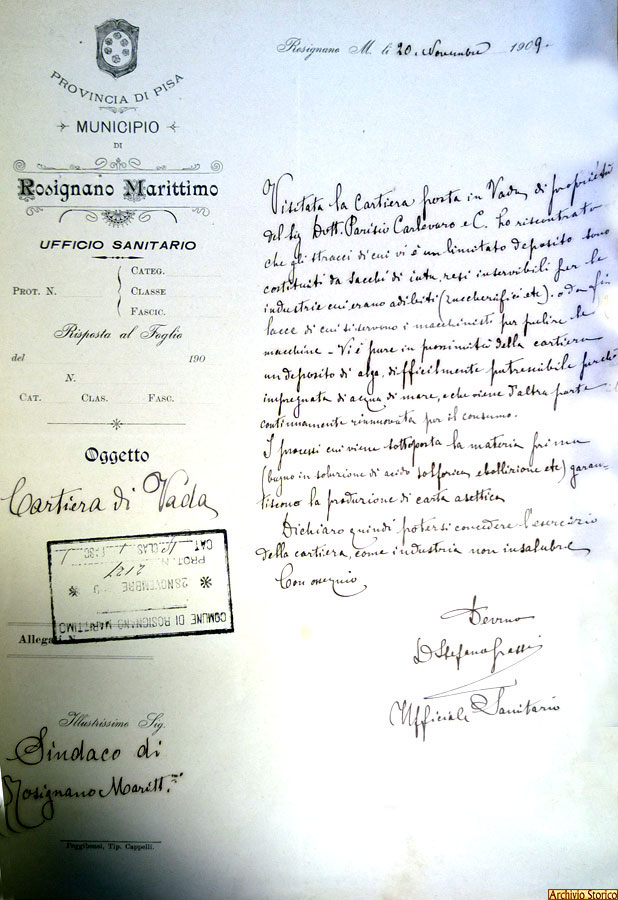 PROVINCIA DI PISA
MUNICIPIO
DI
Rosignano Marittimo
UFFICIO SANITARIO
PROT. N.
CATEG.
CLASSE
FASCIC.
Risposta al Foglio
del 190
N.
CAT. CLAS. FASC.
Oggetto
Cartiera di Vada
COMUNE DI ROSIGNANO MARITTIMO
28 NOVEMBRE
PROT. N. 2127
CAT. CLAS.
Allegati N.
Illustrissimo Sig.
Sindaco di
Rosignano Maritt.mo
Poggibonsi, Tip. Cappelli.
Rosignano M. li 20. Novembre 1909.
Visitata la Cartiera posta in Vada, di proprietà
del Sig Dott. Parisio Carlovaro e C. ho riscontrato
che gli stracci di cui vi è un limitato deposito sono
costituiti da sacchi di iuta, resi inservibili per le
industrie cui erano adibiti (zuccherifici etc), o da fi
lacce di cui si servono i macchinisti per pulire le
macchine - Vi è pure in prossimità della cartiera
un deposito di alga, difficilmente putrescibile perchè
impregnata di acqua di mare, e che viene d'altra parte
continuamente rinnuovata per il consumo.
I processi cui viene sottoposta la materia prima
(bagno in soluzione di acido solforico, ebollizione etc) garan-
tiscono la produzione di carta asettica
Dichiaro quindi potersi concedere l'esercizio
della cartiera, come industria non insalubre
Con ossequio
Devmo
D Stefano Grassi
Ufficiale Sanitario
Archivio Storico